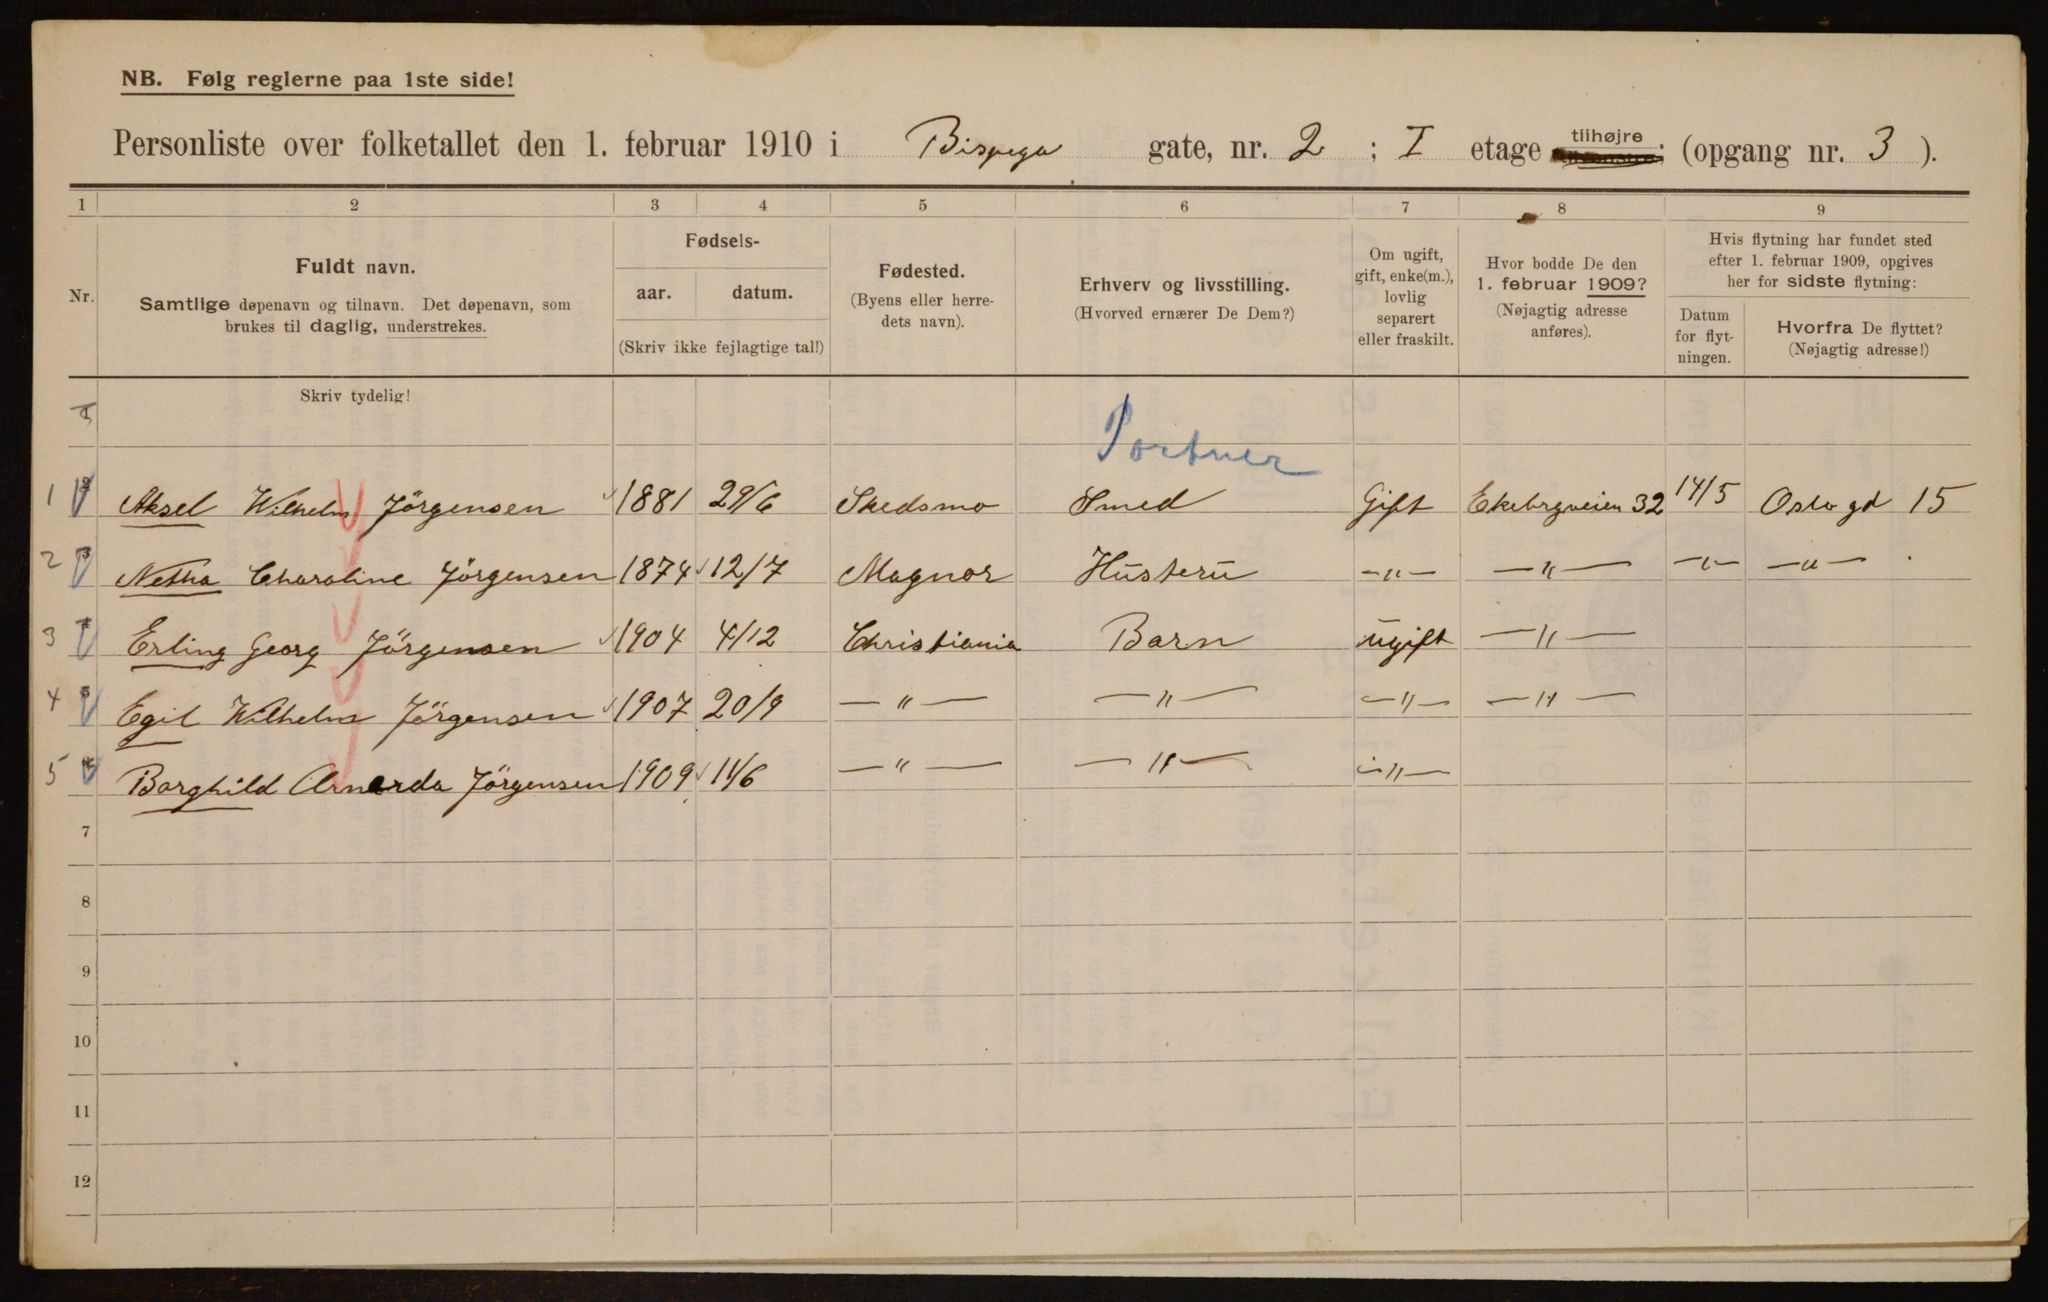 NB. Følg reglerne paa 1ste side!
Personliste over folketallet den 1. februar 1910 i Bispega gate, nr. 2 ; I etage tilhøjre (opgang nr. 3 ).
1 2 3 4 5 6 7 8 9
Nr.
Fuldt navn.
Samtlige døpenavn og tilnavn. Det døpenavn, som
brukes til daglig, understrekes.
Fødsels-
aar. datum.
(Skriv ikke fejlagtige tal!)
Fødested.
(Byens eller herre-
dets navn).
Erhverv og livsstilling.
(Hvorved ernærer De Dem?)
Om ugift,
gift, enke(m.),
lovlig
separert
eller fraskilt.
Hvor bodde De den
1. februar 1909?
(Nøjagtig adresse
anføres).
Hvis flytning har fundet sted
efter 1. februar 1909, opgives
her for sidste flytning:
Datum
for flyt-
ningen.
Hvorfra De flyttet?
(Nøjagtig adresse!)
Skriv tydelig!
Portner
1 Aksel Wilhelm Jörgensen 1881 29/6 Skedsmo Smed Gift Ekebrgveien 32 14/5 Oslo gd 15
2 Netha Charoline Jörgensen 1874 12/7 Magnor Hustru -"- -"- -"- -"-
3 Erling Georg Jörgensen 1904 4/12 Christiania Barn ugift -"-
4 Egil Wilhelm Jörgensen 1907 20/9 -"- -"- -"- -"-
5 Borghild Jörgensen 1909 -"- -"- -"-
7
8
9
10
11
12